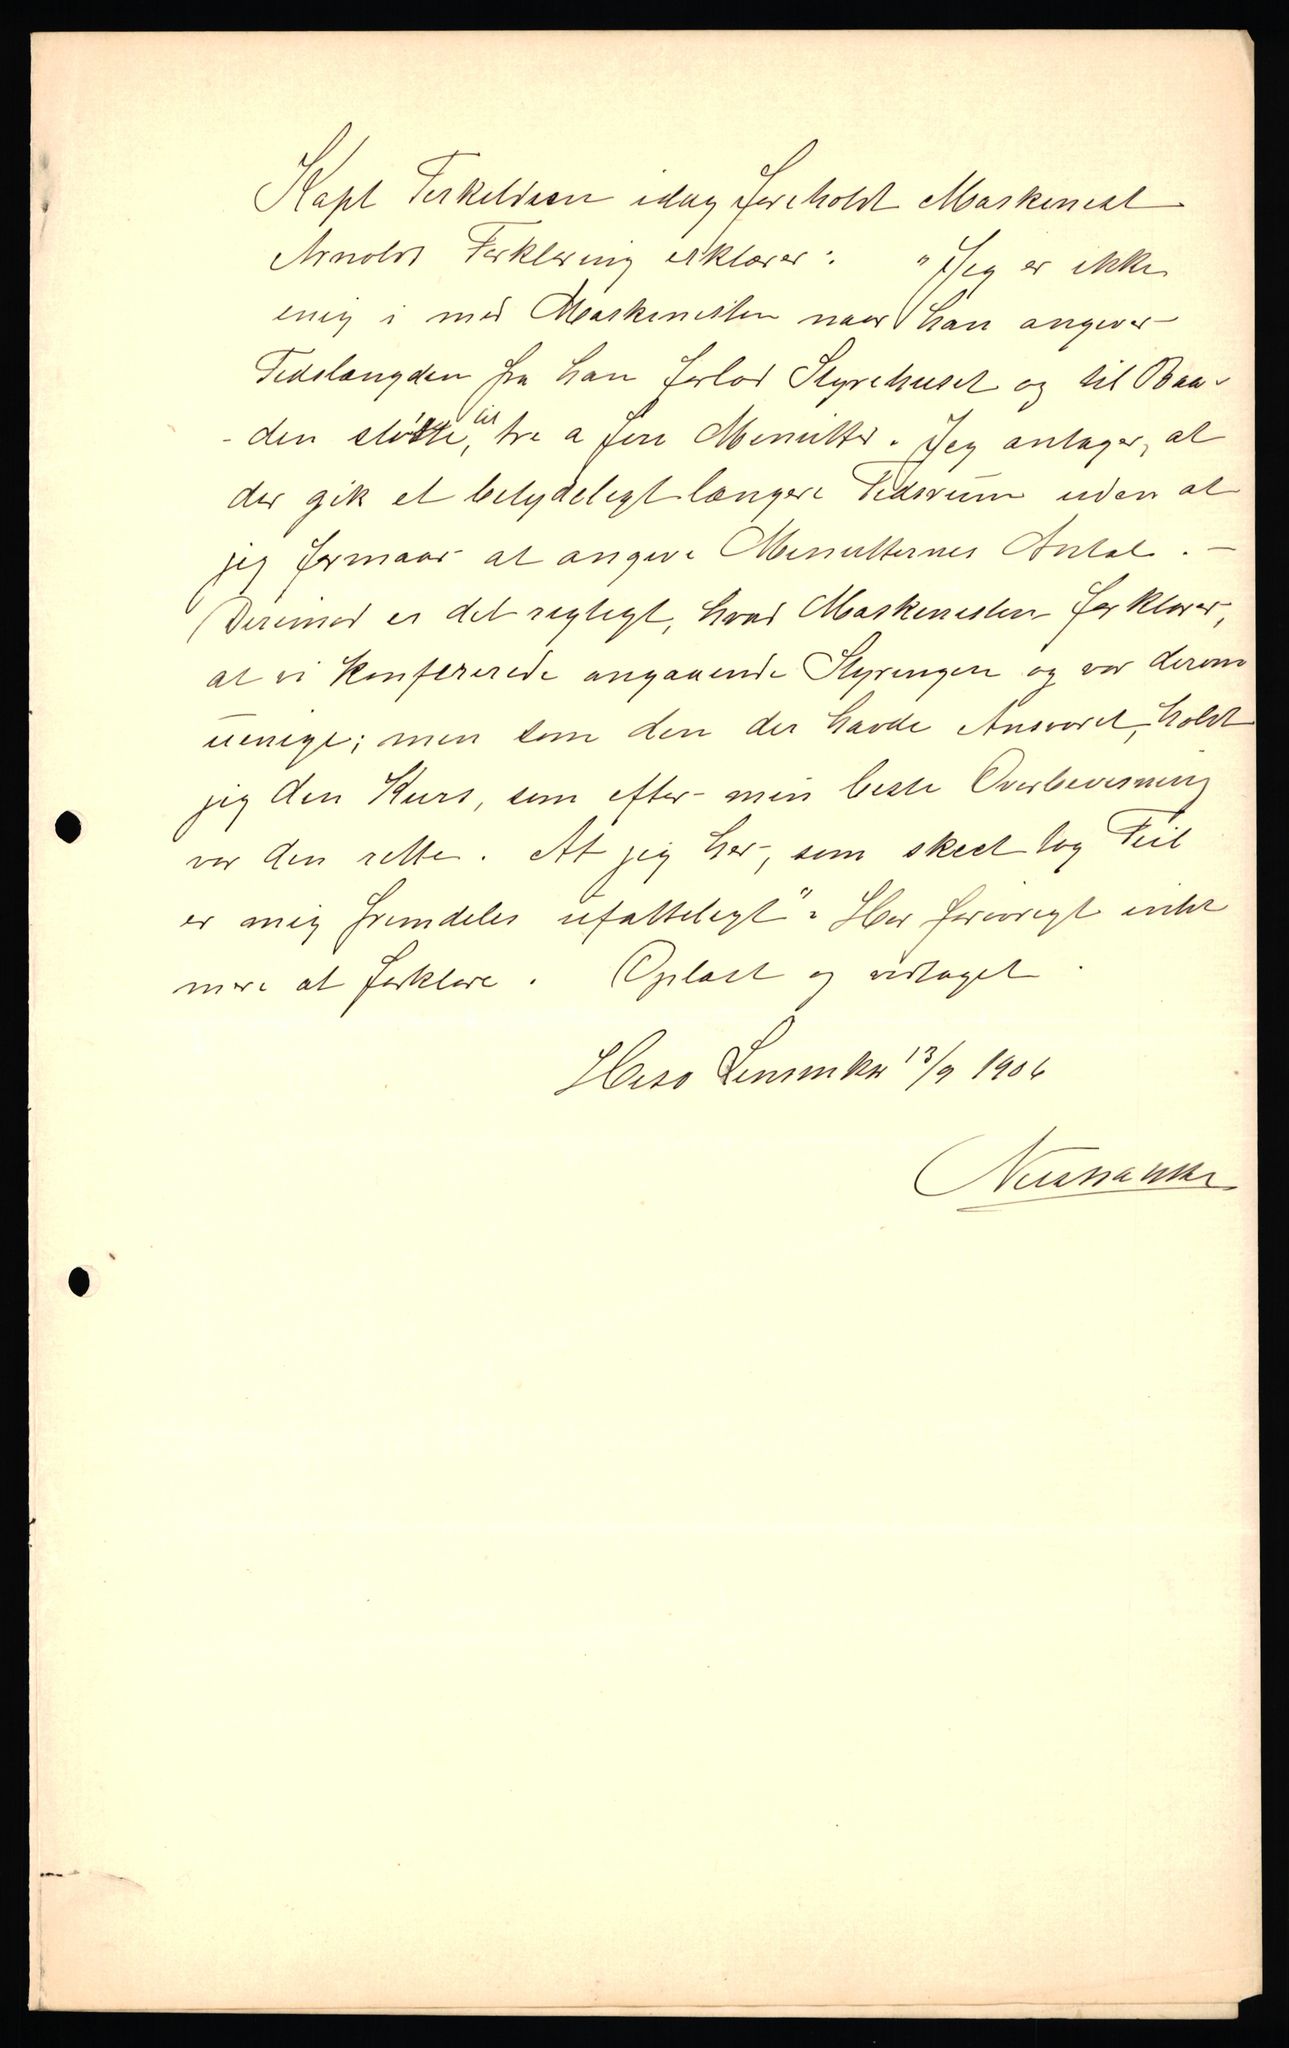 Kapt Terkeldsen idag foreholdt Maskinist
Arnolds Forklaring erklærer: "Jeg er ikke
enig i med Maskinisten naar han angiver
Tidslængden fra han forlod Styrehuset og til Baa-
-den stødte, til tre a fire Minutter. Jeg antager, at
der gik et betydeligt længere Tidsrum uden at
jeg formaar at angive Minutternes Antal. —
Derimod er det rigtigt, hvad Maskinisten forklarer,
at vi konfererede angaaende Styringen og var derom
uenige; men som den der havde Ansvaret, holdt
jeg den Kurs, som efter min beste Overbevisning
var den rette. At jeg her, som skeet tog Feil
er mig fremdeles ufatteligt". Har forøvrigt intet
mere at forklare. Oplæst og vedtaget.
Hisø Lensmkr 13/9 1906